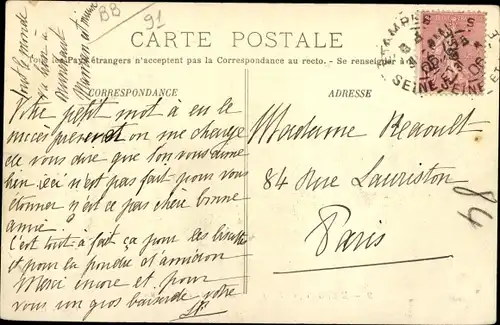 BB
91
tout le monde
va bien à
CARTE POSTALE
Tous les Pays étrangers n'acceptent pas la Correspondance au recto. Se renseigner à
CORRESPONDANCE
ADRESSE
ETAMPES
SEINE
Votre petit mot a eu le
succès prévu et on me charge
de vous dire que l'on vous aime
bien ici n'est pas fait pour vous
étonner n'est ce pas chère bonne
amie
C'est tout à fait ça pour les
et pour la poudre d'amidon
Merci encore et pour
vous un gros baiser de votre
Madame Reaoult
84 Rue Lauriston
Paris
84